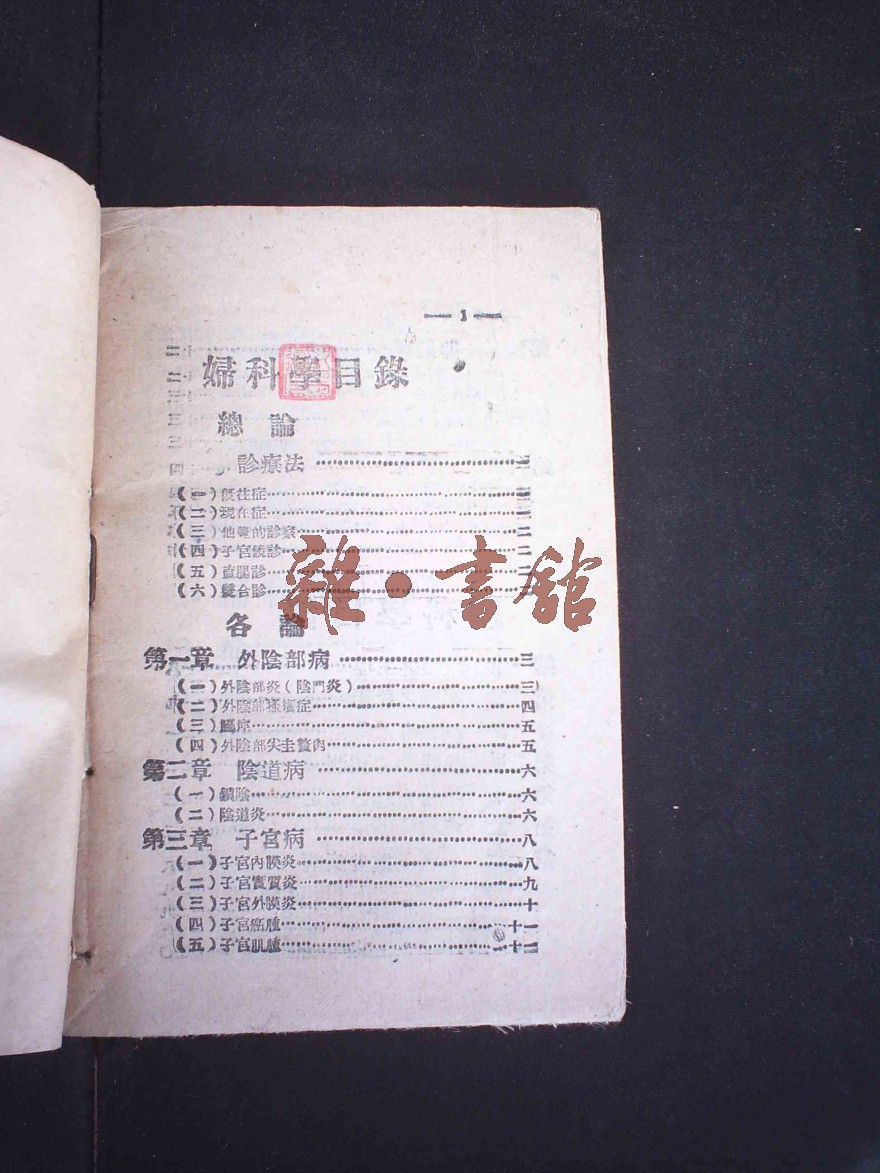 — 1 —
婦科學目錄
總論
診療法
(一)既往症
(二)現在症
(三)他覺的診察 二
(四)子宮鏡診 二
(五)直腸診 二
(六)雙合診
雜·書舘
各論
第一章 外陰部病 三
(一)外陰部炎(陰門炎) 三
(二)外陰部瘙癢症 四
(三) 五
(四)外陰部尖圭贅肉 五
第二章 陰道病 六
(一)鎖陰 六
(二)陰道炎 六
第三章 子宮病 八
(一)子宮內膜炎 八
(二)子宮實質炎 九
(三)子宮外膜炎 十
(四)子宮癌腫 十一
(五)子宮肌腫